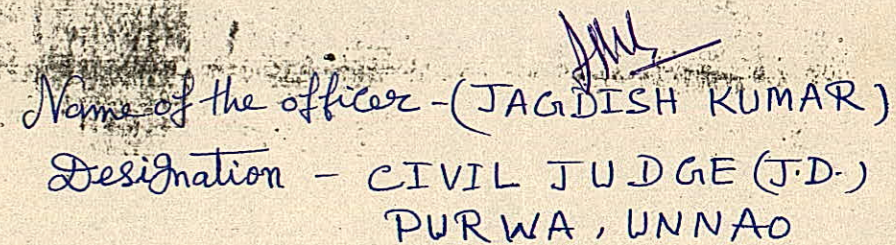 Name of the officer - (JAGDISH KUMAR)
Designation - CIVIL JUDGE (J.D.)
PURWA, UNNAO